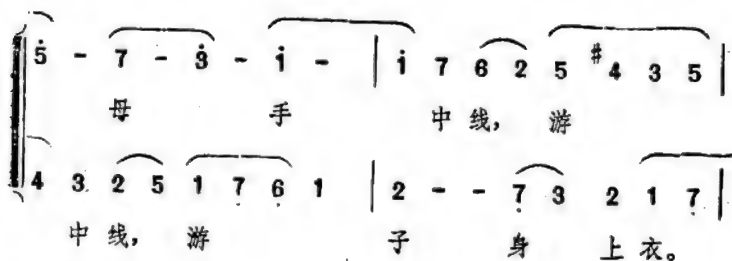 5̇ - 7 - 3̇ - i̇ - | i̇ 7 6 2 5 #4 3 5 |
母 手 中线， 游
4 3 2 5 1 7̣ 6̣ 1 | 2 - - 7̣ 3 2 1 7̣ |
中线， 游 子 身 上衣。